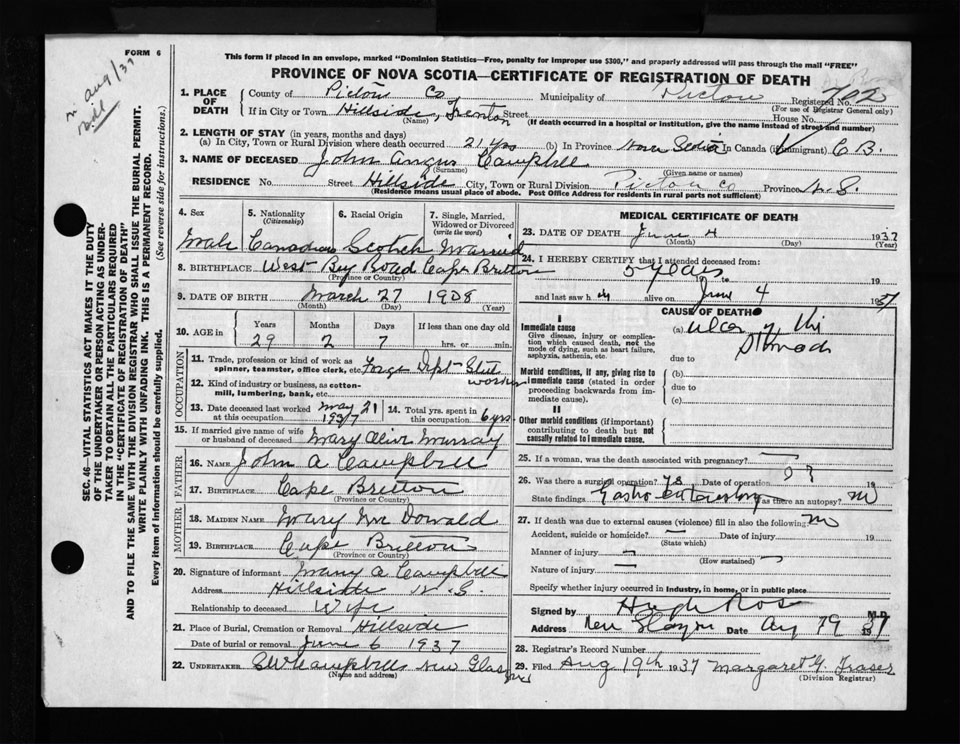 FORM 6
This form if placed in an envelope, marked "Dominion Statistics—Free, penalty for improper use $300," and properly addressed will pass through the mail "FREE"
PROVINCE OF NOVA SCOTIA—CERTIFICATE OF REGISTRATION OF DEATH
Aug/37
SEC. 46—VITAL STATISTICS ACT MAKES IT THE DUTY
OF THE UNDERTAKER OR PERSON ACTING AS UNDER-
TAKER TO OBTAIN ALL THE PARTICULARS REQUIRED
IN THE "CERTIFICATE OF REGISTRATION OF DEATH"
AND TO FILE THE SAME WITH THE DIVISION REGISTRAR WHO SHALL ISSUE THE BURIAL PERMIT.
WRITE PLAINLY WITH UNFADING INK. THIS IS A PERMANENT RECORD.
Every item of information should be carefully supplied. (See reverse side for instructions.)
1. PLACE OF DEATH County of Pictou Co. Municipality of Pictou Registered No. 702
(For use of Registrar General only)
If in City or Town Hillside, Trenton Street House No.
(Name) (If death occurred in a hospital or institution, give the name instead of street and number)
2. LENGTH OF STAY (in years, months and days)
(a) In City, Town or Rural Division where death occurred 21 yrs (b) In Province Nova Scotia In Canada (if immigrant) C B.
3. NAME OF DECEASED John Angus Campbell
(Surname) (Given name or names)
RESIDENCE No. Street Hillside City, Town or Rural Division Pictou Co Province N. S.
(Residence means usual place of abode. Post Office Address for residents in rural parts not sufficient)
4. Sex 5. Nationality (Citizenship) 6. Racial Origin 7. Single, Married, Widowed or Divorced (write the word)
Male Canadian Scotch Married
8. BIRTHPLACE West Bay Road Cape Breton
(Province or Country)
9. DATE OF BIRTH March 27 1908
(Month) (Day) (Year)
10. AGE in Years Months Days If less than one day old
29 2 7 hrs. or min.
OCCUPATION
11. Trade, profession or kind of work as spinner, teamster, office clerk, etc. Forge Dept Steel worker
12. Kind of industry or business, as cotton-mill, lumbering, bank, etc.
13. Date deceased last worked at this occupation May 21 1937
14. Total yrs. spent in this occupation 6 yrs
15. If married give name of wife or husband of deceased Mary Olive Murray
FATHER
16. NAME John A Campbell
17. BIRTHPLACE Cape Breton
(Province or Country)
MOTHER
18. MAIDEN NAME Mary McDonald
19. BIRTHPLACE Cape Breton
(Province or Country)
20. Signature of informant Mary O Campbell
Address Hillside N. S.
Relationship to deceased Wife
21. Place of Burial, Cremation or Removal Hillside
Date of burial or removal June 6 1937
22. UNDERTAKER Campbell New Glasgow
(Name and address)
MEDICAL CERTIFICATE OF DEATH
23. DATE OF DEATH June 4 1937
(Month) (Day) (Year)
24. I HEREBY CERTIFY that I attended deceased from:
5 years 19 to 19
and last saw h im alive on June 4 1937
CAUSE OF DEATH
I
Immediate cause
Give disease, injury or complication which caused death, not the mode of dying, such as heart failure, asphyxia, asthenia, etc.
(a) Ulcer of the Stomach
due to
Morbid conditions, if any, giving rise to immediate cause (stated in order proceeding backwards from immediate cause).
(b)
due to
(c)
II
Other morbid conditions (if important) contributing to death but not causally related to immediate cause.
25. If a woman, was the death associated with pregnancy?
26. Was there a surgical operation? Yes Date of operation 19
State findings Gastro enterostomy Was there an autopsy? No
27. If death was due to external causes (violence) fill in also the following: No
Accident, suicide or homicide? Date of injury 19
(State which)
Manner of injury
(How sustained)
Nature of injury
Specify whether injury occurred in industry, in home, or in public place
Signed by Hugh Ross M.D.
Address New Glasgow Date Aug 19 1937
28. Registrar's Record Number
29. Filed Aug 19th 1937 Margaret G. Fraser
(Division Registrar)